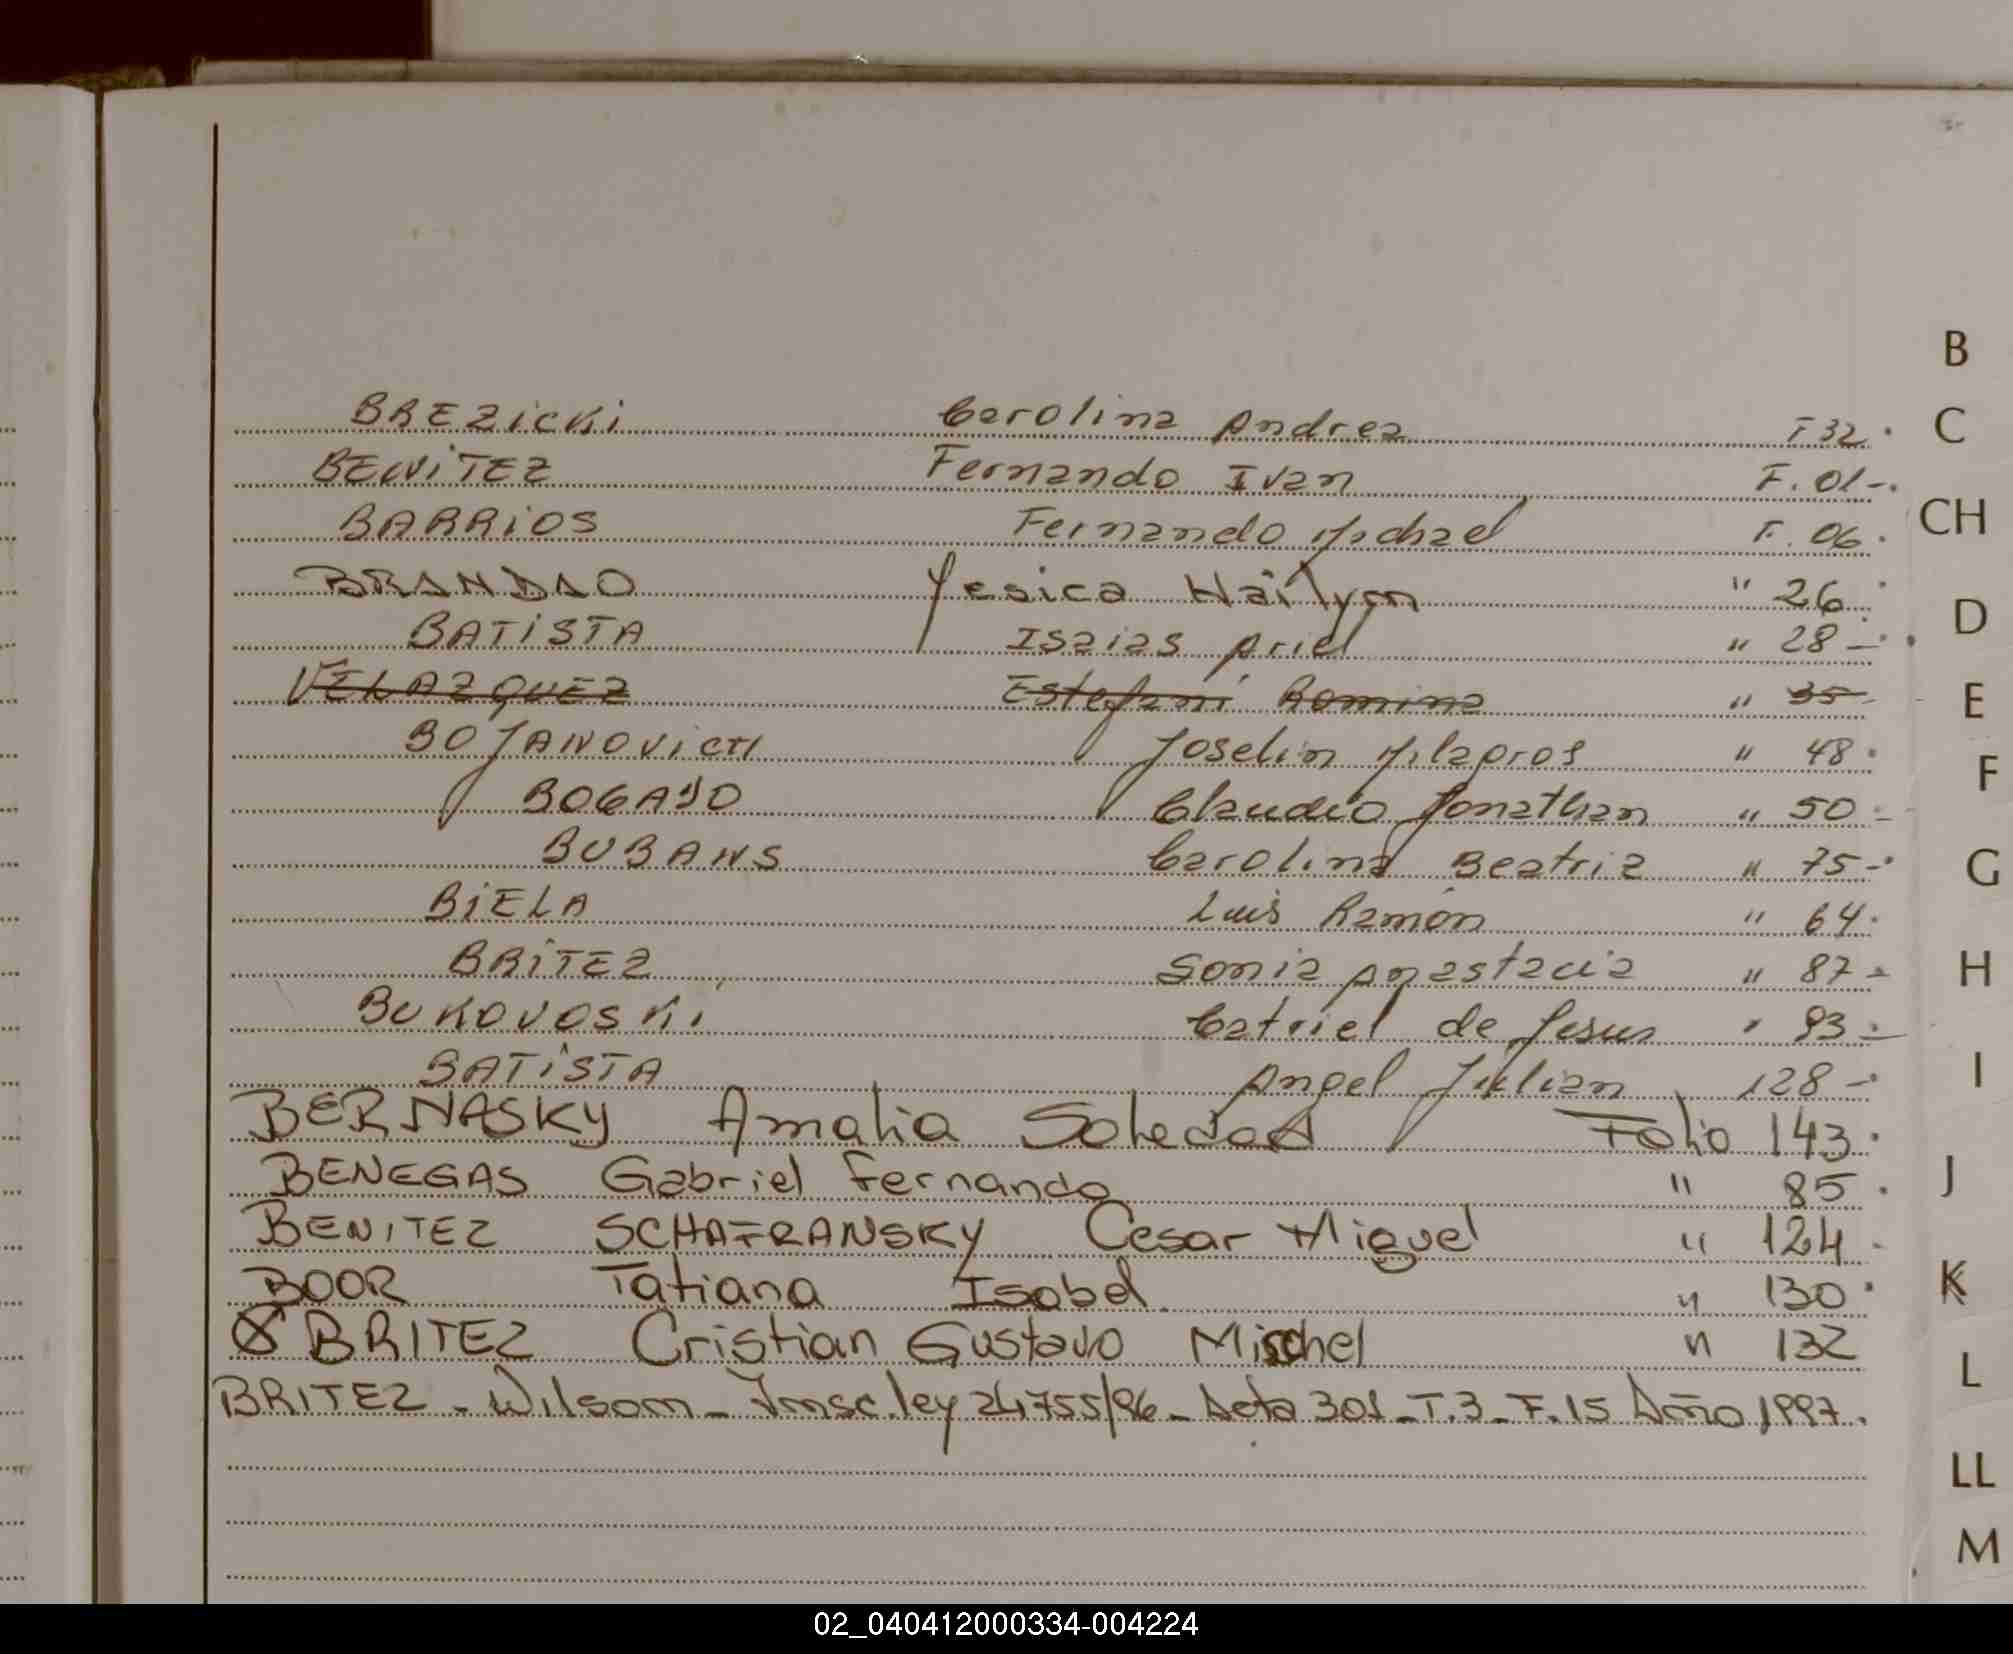 BREZICKI Carolina Andrea F 32.
BENITEZ Fernando Ivan F. 01-.
BARRIOS Fernando Michael F. 06.
BRANDAO Yesica Hailyn " 26.
BATISTA Isaias Ariel " 28-.
VELAZQUEZ Estefani Romina " 35-
BOJANOVICH Joselin Milagros " 48.
BOGADO Claudio Jonathan " 50-
BUBANS Carolina Beatriz " 75-.
BIELA Luis Ramón " 64.
BRITEZ Sonia Anastacia " 87-
BUKOVOSKI Catriel de Jesus " 93-
BATISTA Angel Julian 128-.
BERNASKY Amalia Soledad Folio 143.
BENEGAS Gabriel Fernando " 85.
BENITEZ SCHAFRANSKY Cesar Miguel " 124.
BOOR Tatiana Isabel " 130.
BRITEZ Cristian Gustavo Mischel " 132
BRITEZ - Wilson - Insc. ley 24755/96 - Acta 301 - T.3 - F.15 Año 1997.
B
C
CH
D
E
F
G
H
I
J
K
L
LL
M
02_040412000334-004224